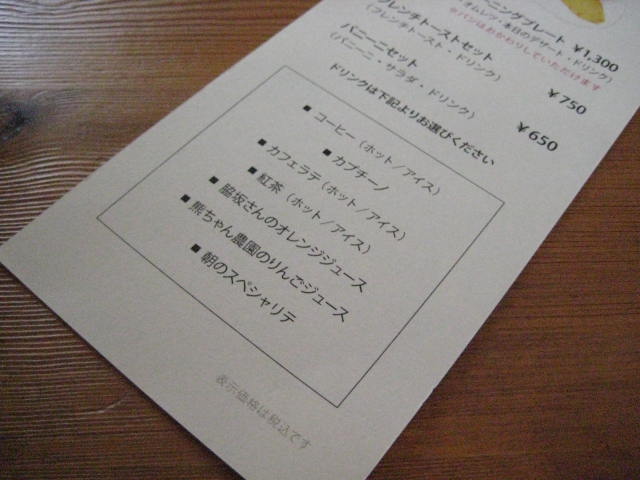 ニングプレート ¥1,300
オムレツ・本日のデザート・ドリンク)
※パンはおかわりしていただけます
フレンチトーストセット ¥750
(フレンチトースト・ドリンク)
パニーニセット ¥650
(パニーニ・サラダ・ドリンク)
ドリンクは下記よりお選びください
■ コーヒー(ホット/アイス)
■ カプチーノ
■ カフェラテ(ホット/アイス)
■ 紅茶(ホット/アイス)
■ 脇坂さんのオレンジジュース
■ 熊ちゃん農園のりんごジュース
■ 朝のスペシャリテ
表示価格は税込です